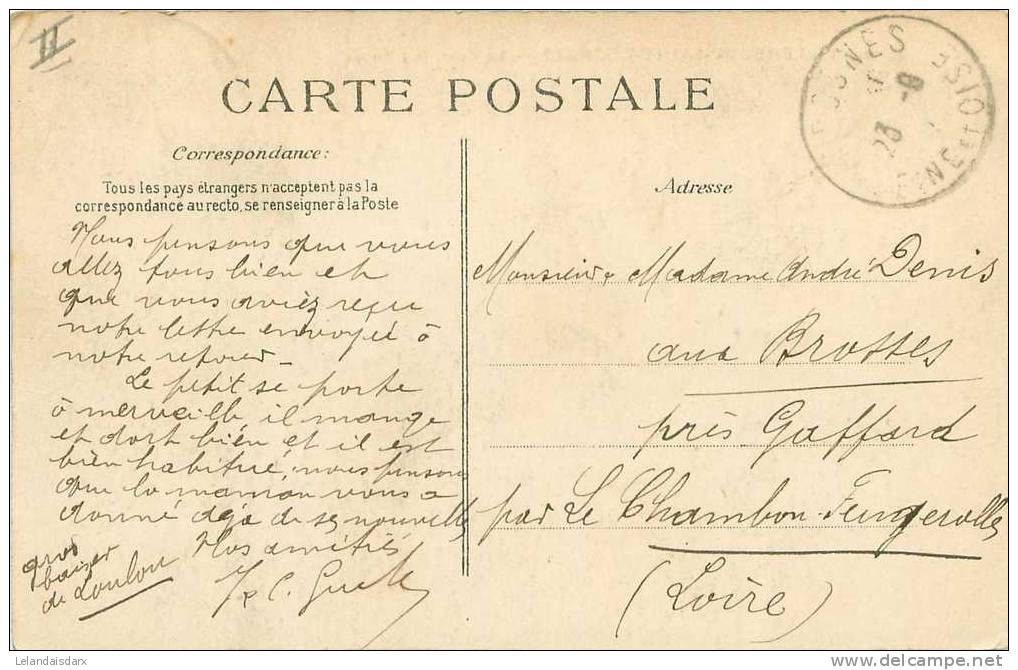 II
CARTE POSTALE
Correspondance:
Tous les pays étrangers n'acceptent pas la
correspondance au recto, se renseigner à la Poste
Adresse
Nous pensons que vous
allez tous bien et
que vous aviez reçu
notre lettre envoyée à
notre retour -
Le petit se porte
à merveille il mange
et dort bien et il est
bien habitué, nous pensons
que la maman vous a
donné déjà de ses nouvelles
Nos amitiés
gros
baiser
de Loulou
Monsieur & Madame André Denis
aux Brosses
près Gaffard
par Le Chambon-Feugerolles
(Loire)
23 -8
OISE
Lelandaisdarx
www.delcampe.net